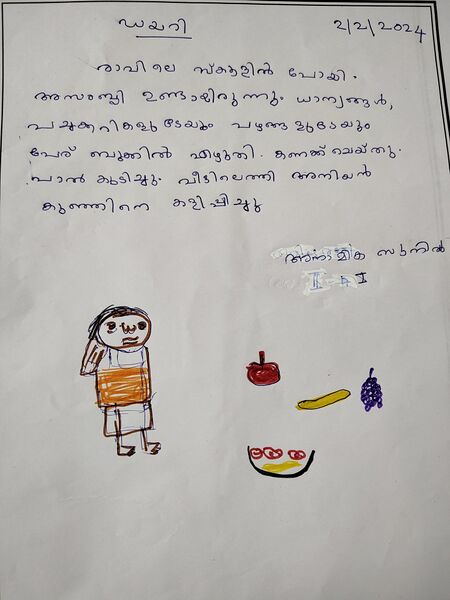 ഡയറി
2/2/2024
രാവിലെ സ്കൂളിൽ പോയി.
അസംബ്ലി ഉണ്ടായിരുന്നും ധാന്യങ്ങൾ,
പച്ചക്കറികളുടേയും പഴങ്ങളുടേയും
പേര് ബുക്കിൽ എഴുതി. കണക്ക് ചെയ്തു.
പാൽ കുടിച്ചും. വീട്ടിലെത്തി അനിയൻ
കുഞ്ഞിനെ കളിപ്പിച്ചു
അനാമിക സുനിൽ